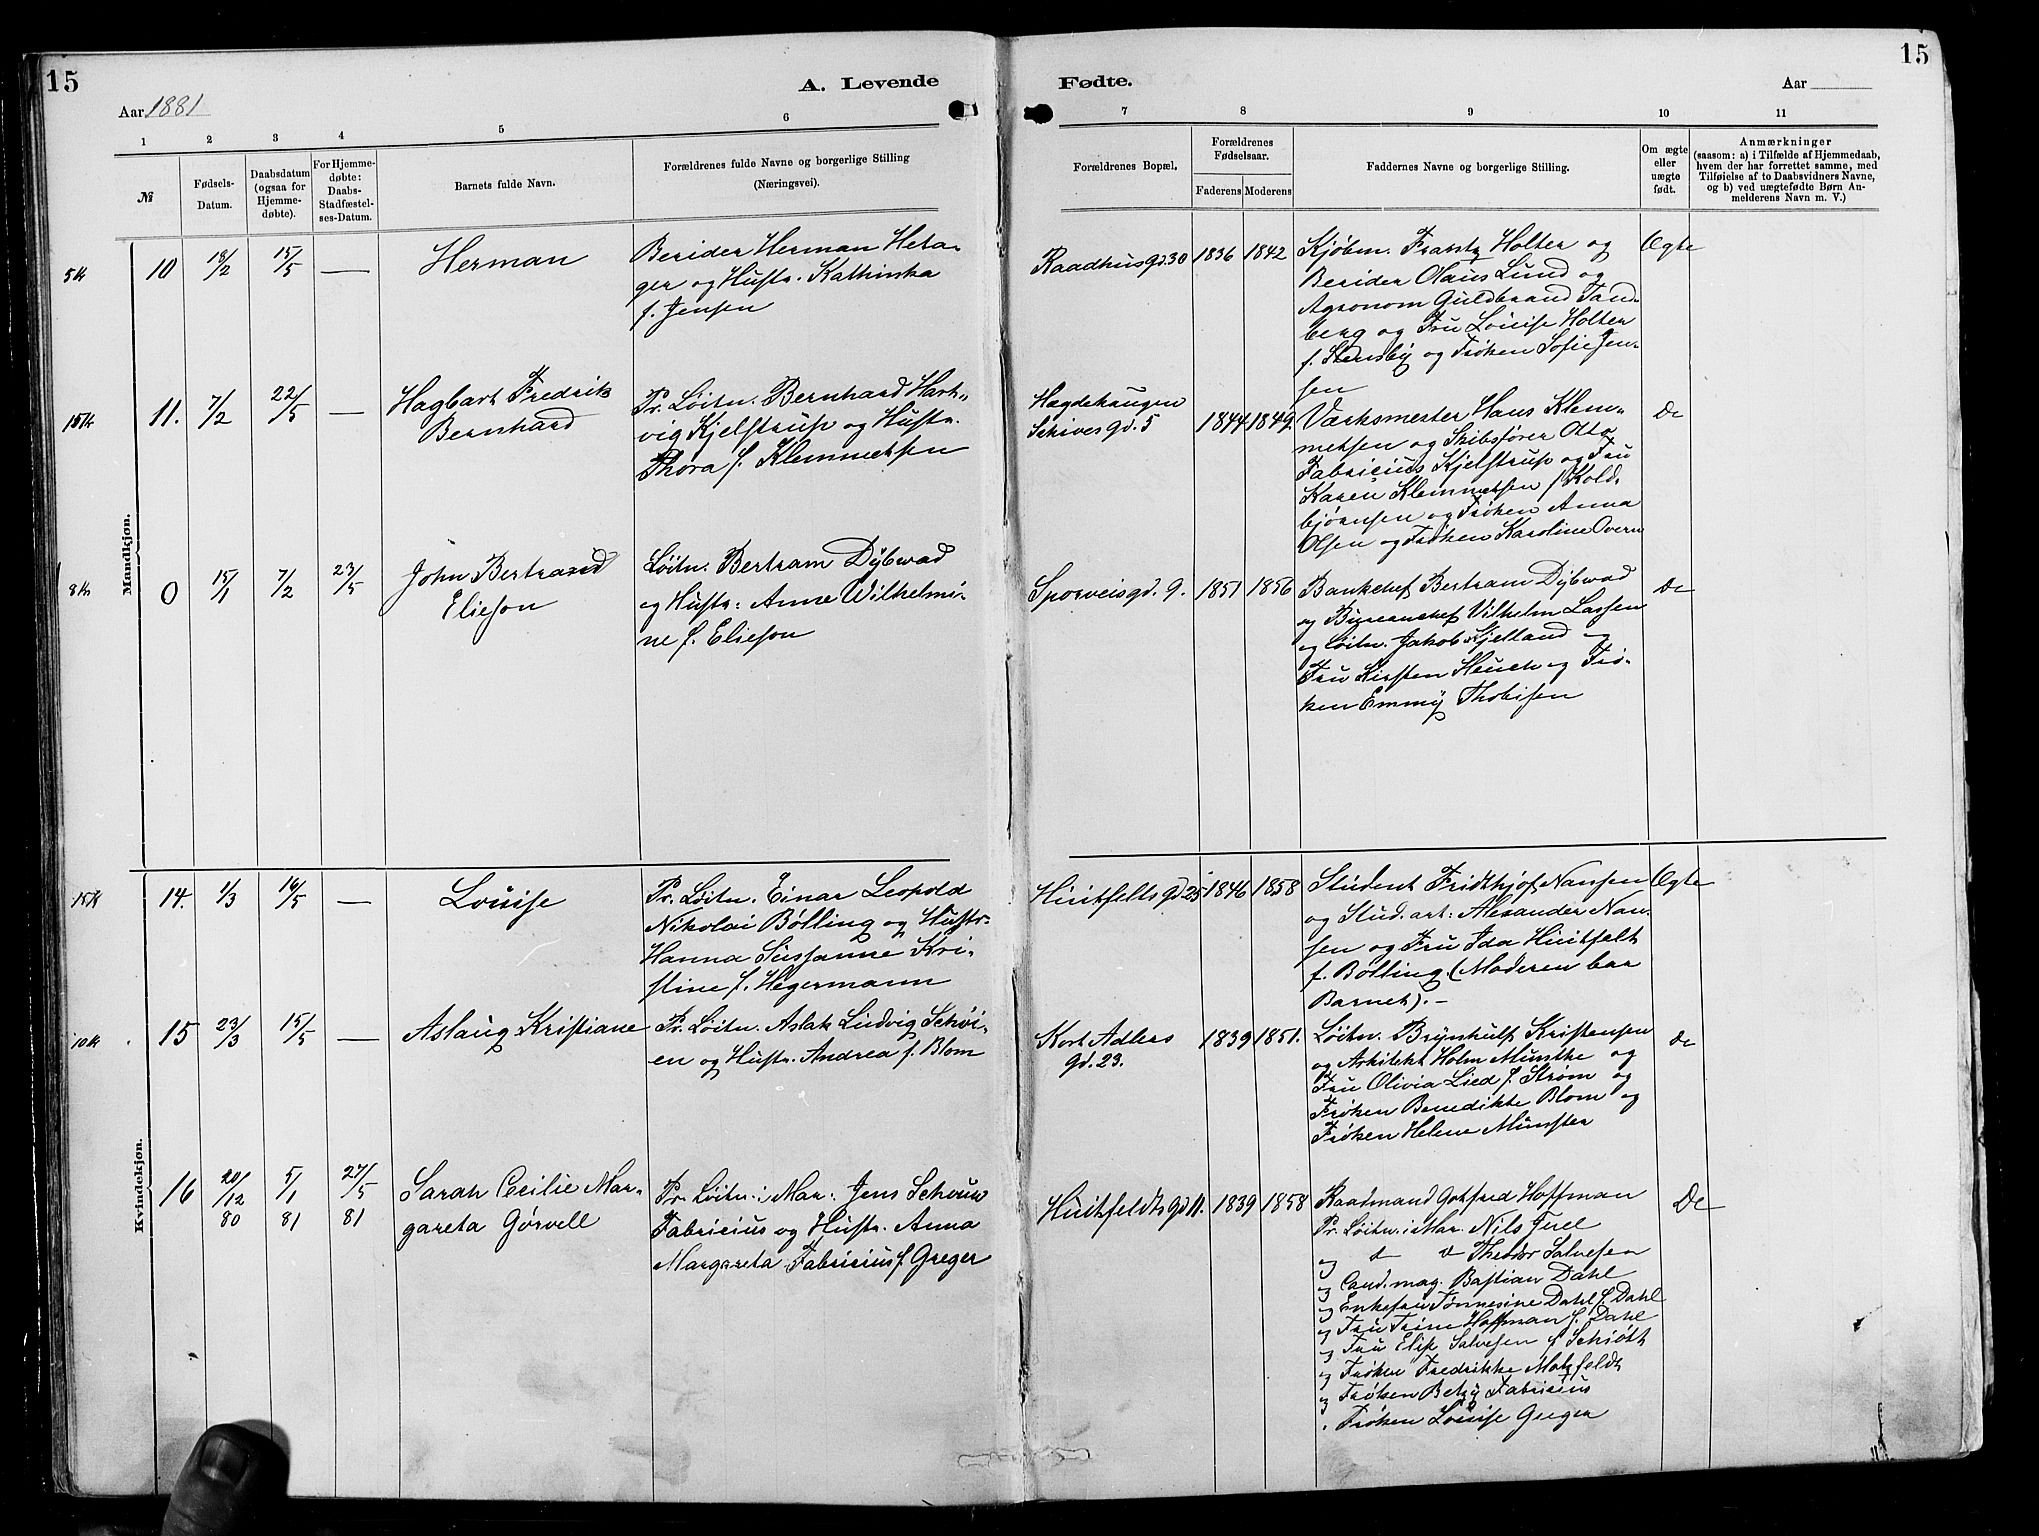 15
A. Levende
Aar 1881
1
2
3
4
5
6
№
Fødsels-
Datum.
Daabsdatum
(ogsaa for
Hjemme-
døbte).
For Hjemme-
døbte:
Daabs-
Stadfæstel-
ses-Datum.
Barnets fulde Navn.
Forældrenes fulde Navne og borgerlige Stilling
(Næringsvei).
Mandkjøn.
5 k
10
18/2
15/5
—
Herman
Berider Herman Heta-
ger og Hustr. Kathinka
f. Jensen
15 k
11.
7/2
22/5
—
Hagbart Fredrik
Bernhard
Pr. Løitn. Bernhard Hart-
vig Kjelstrup og Hustr.
Thora f. Klemmetsen
8 k
0
15/1
7/2
23/5
John Bertrand
Elieson
Løitn. Bertram Dybwad
og Hustr: Anne Wilhelmi-
ne f. Elieson
Kvindekjøn.
15 k
14.
1/3
16/5
—
Louise
Pr. Løitn. Einar Leopold
Nikolai Bølling og Hustr.
Hanna Sussanne Kri-
stine f. Hegermann
10 k
15
23/3
15/5
—
Aslaug Kristiane
Pr. Løitn. Aslak Ludvig Schøi-
en og Hustr. Andrea f. Blom
16
20/12
80
5/1
81
27/5
81
Sarah Cecilie Mar-
gareta Gørvell
Pr. Løitn. i Mar. Jens Schouw
Fabricius og Hustr. Anna
Margareta Fabricius f. Greger
15
Fødte.
Aar
7
8
9
10
11
Forældrenes Bopæl.
Forældrenes
Fødselsaar.
Faderens
Moderens
Faddernes Navne og borgerlige Stilling.
Om ægte
eller
uægte
født.
Anmærkninger
(saasom: a) i Tilfælde af Hjemmedaab,
hvem der har forrettet samme, med
Tilføielse af to Daabsvidners Navne,
og b) ved uægtefødte Børn An-
melderens Navn m. V.)
Raadhusgd. 30
1836
1842
Kjøbm. Frantz Holter og
Berider Olaus Lund og
Agronom Guldbrand Tand-
berg og Fru Louise Holter
f. Stensby og Frøken Sofie Jen-
sen
Ægte
Hægdehaugen
Schives gd. 5
1844
1849.
Værksmester Hans Klem-
metsen og Skibsfører Otto
Fabricius Kjelstrup og Fru
Karen Klemmetsen f. Kold-
bjørnsen og Frøken Anna
Olsen og Frøken Karoline Overn
do
Sporveisgd. 9.
1851
1856
Bankchef Bertram Dybwad
og Bureauchef Vilhelm Lassen
og Løitn. Jakob Kjelland og
Fru Kirsten Heuch og Frø-
ken Emmy Thobisen
do
Huitfelts gd 25
1846
1858
Student Fridthjof Nansen
og Stud. art: Alexander Nan-
sen og Fru Ida Huitfelt
f. Bølling. (Moderen bar
Barnet). –
Ægte
Kort Adlers
gd. 23.
1839
1851.
Løitn. Brynhulf Kristensen
og Arkitekt Holm Munthe og
Fru Olivia Lied f. Strøm og
Frøken Benedikte Blom og
Frøken Helene Münster
do
Huitfeldts gd 11.
1839
1858
Raadmand Gotfred Hoffman
Pr. Løitn. i Mar. Nils Juel
og d d Theodor Salvesen
og Cand. mag. Bastian Dahl
og Enkefru Tønnesine Dahl f. Dahl
og Fru Trine Hoffman f. Dahl
og Fru Elise Salvesen f. Schiøtt
og Frøken Fredrikke Motzfeldt
og Frøken Betzy Fabricius
. Frøken Louise Greger
Do